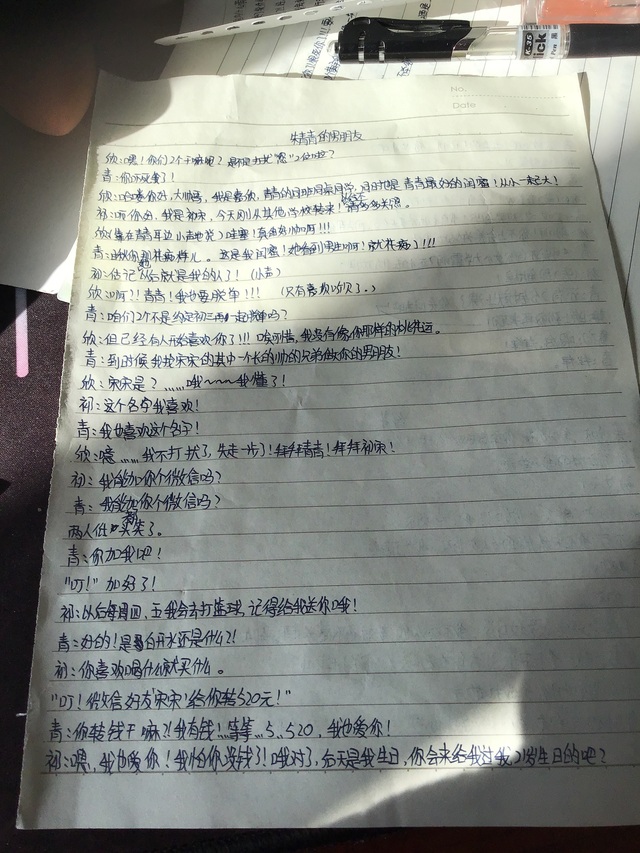 No.
Date
朱青青的男朋友
欣:嘿!你们2个干嘛呢?是不是打扰"您"2位啦?
青:你吓死我了!
欣:哈喽你好,大帅哥,我是喜欣,青青的同班同桌同学,同时也是青青最好的闺蜜!从小一起大!
初:你好,我是初宋,今天刚从其他学校转来!请多多关照。
欣(靠在青耳边小声地说)哇塞!真的好帅啊!!!
青:瞅你那花痴样儿。这是我闺蜜!她看到男生啊!就花痴)!!!
初:估记以后就是我的人了!(小声)
欣:啊?!青青!我也要脱单!!!(只有喜欣哈哭了。)
青:咱们2个不是约定初三再一起脱单吗?
欣:但已经有人开始喜欢你了!!!唉可惜,我没有像你那样的桃花运。
青:到时候我找宋宋的其中一个长的帅的兄弟做你的男朋友!
欣:宋宋是?……哦~~~我懂了!
初:这个名字我喜欢!
青:我也喜欢这个名字!
欣:噫……我不打扰了,先走一步了!拜拜青青!拜拜初宋!
初:我能加你个微信吗?
青:我能加你个微信吗?
两人住口笑了。
青:你加我吧!
"叮!"加好了!
初:以后每周四、五我会去打篮球,记得给我送水哦!
青:好的!是白开水还是什么?!
初:你喜欢喝什么就买什么。
"叮!微信好友'宋宋'给你转520元!"
青:你转钱干嘛?!我有钱!等等…5..520,我也爱你!
初:嗯,我也爱你!我怕你没钱了!哦对了,后天是我生日,你会来给我过我21岁生日的吧?